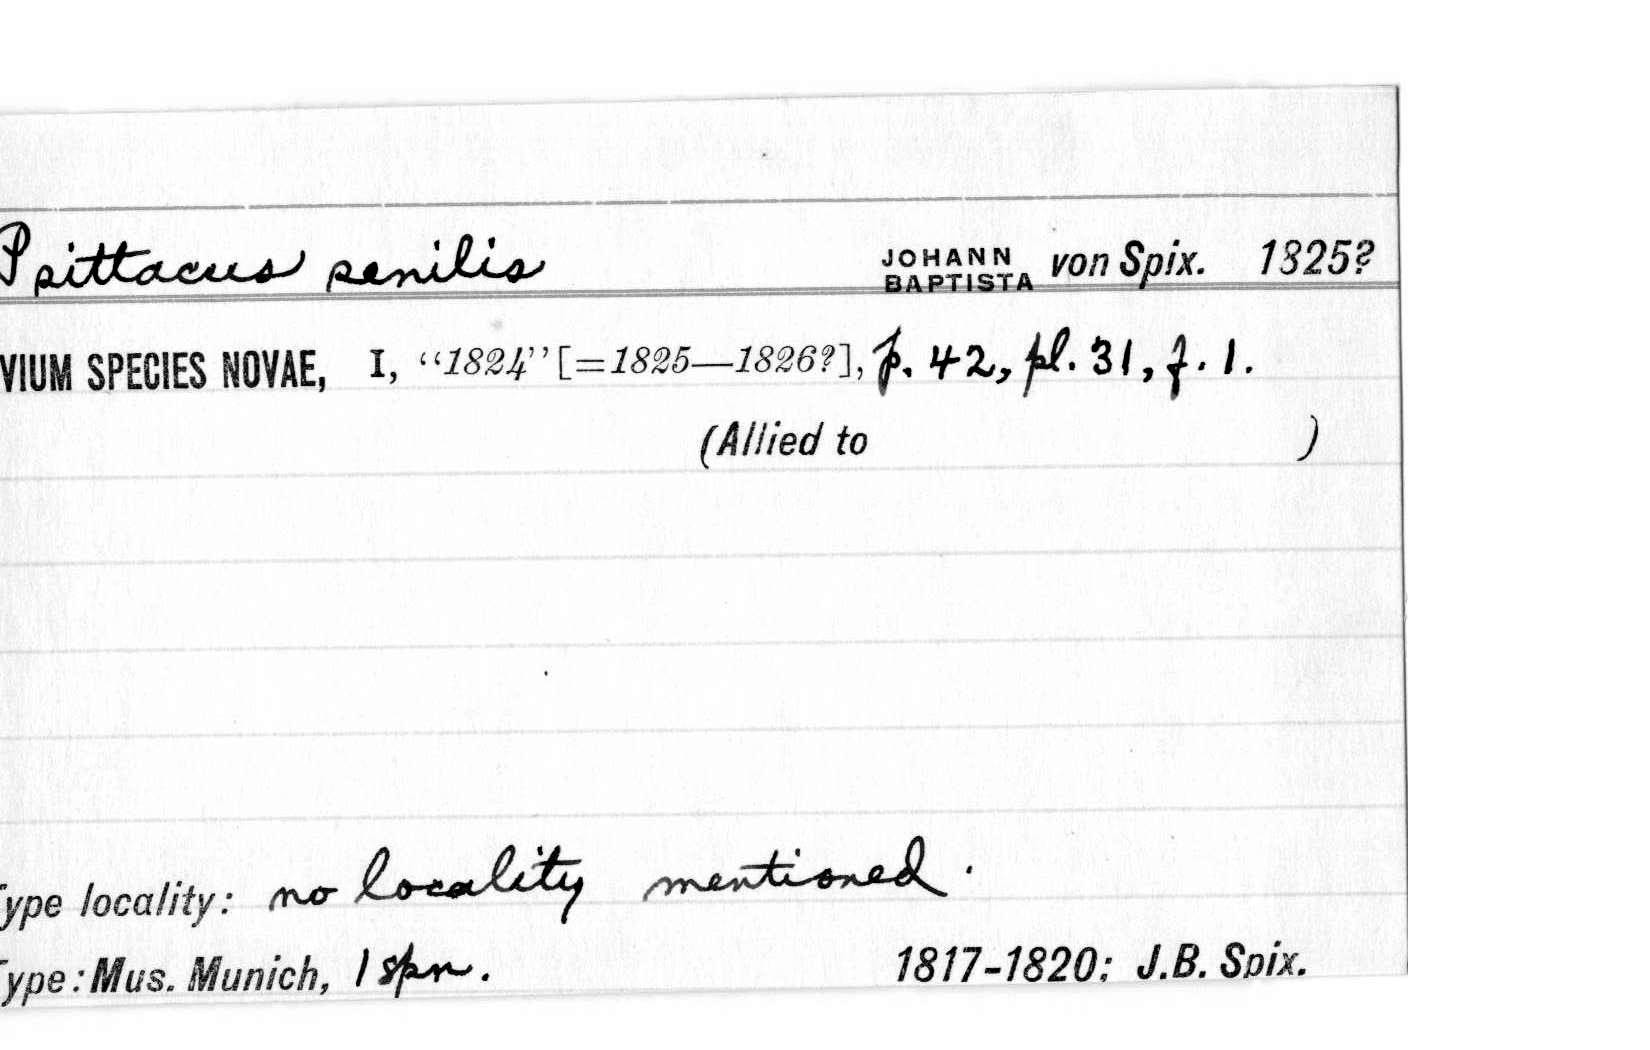 Psittacus senilis JOHANN BAPTISTA von Spix. 1825?
VIUM SPECIES NOVAE, I, “1824” [=1825—1826?], p. 42, pl. 31, f. 1.
(Allied to )
Type locality: no locality mentioned.
Type: Mus. Munich, 1 spn. 1817-1820; J.B. Spix.